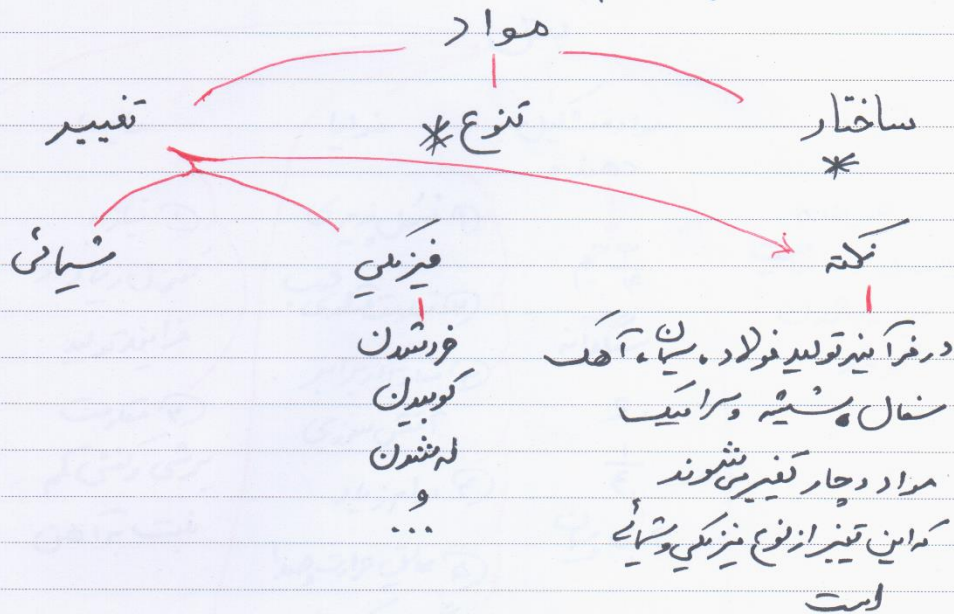 مواد
ساختار تنوع * تغییر
*
نکته فیزیکی شیمائی
در فرآیند تولید فولاد، سیمان، آهک
سفال، شیشه و سرامیک
مواد دچار تغییر می‌شوند
که این تغییر از نوع فیزیکی و شیمائی
است
خردشدن
کوبیدن
له شدن
و
...